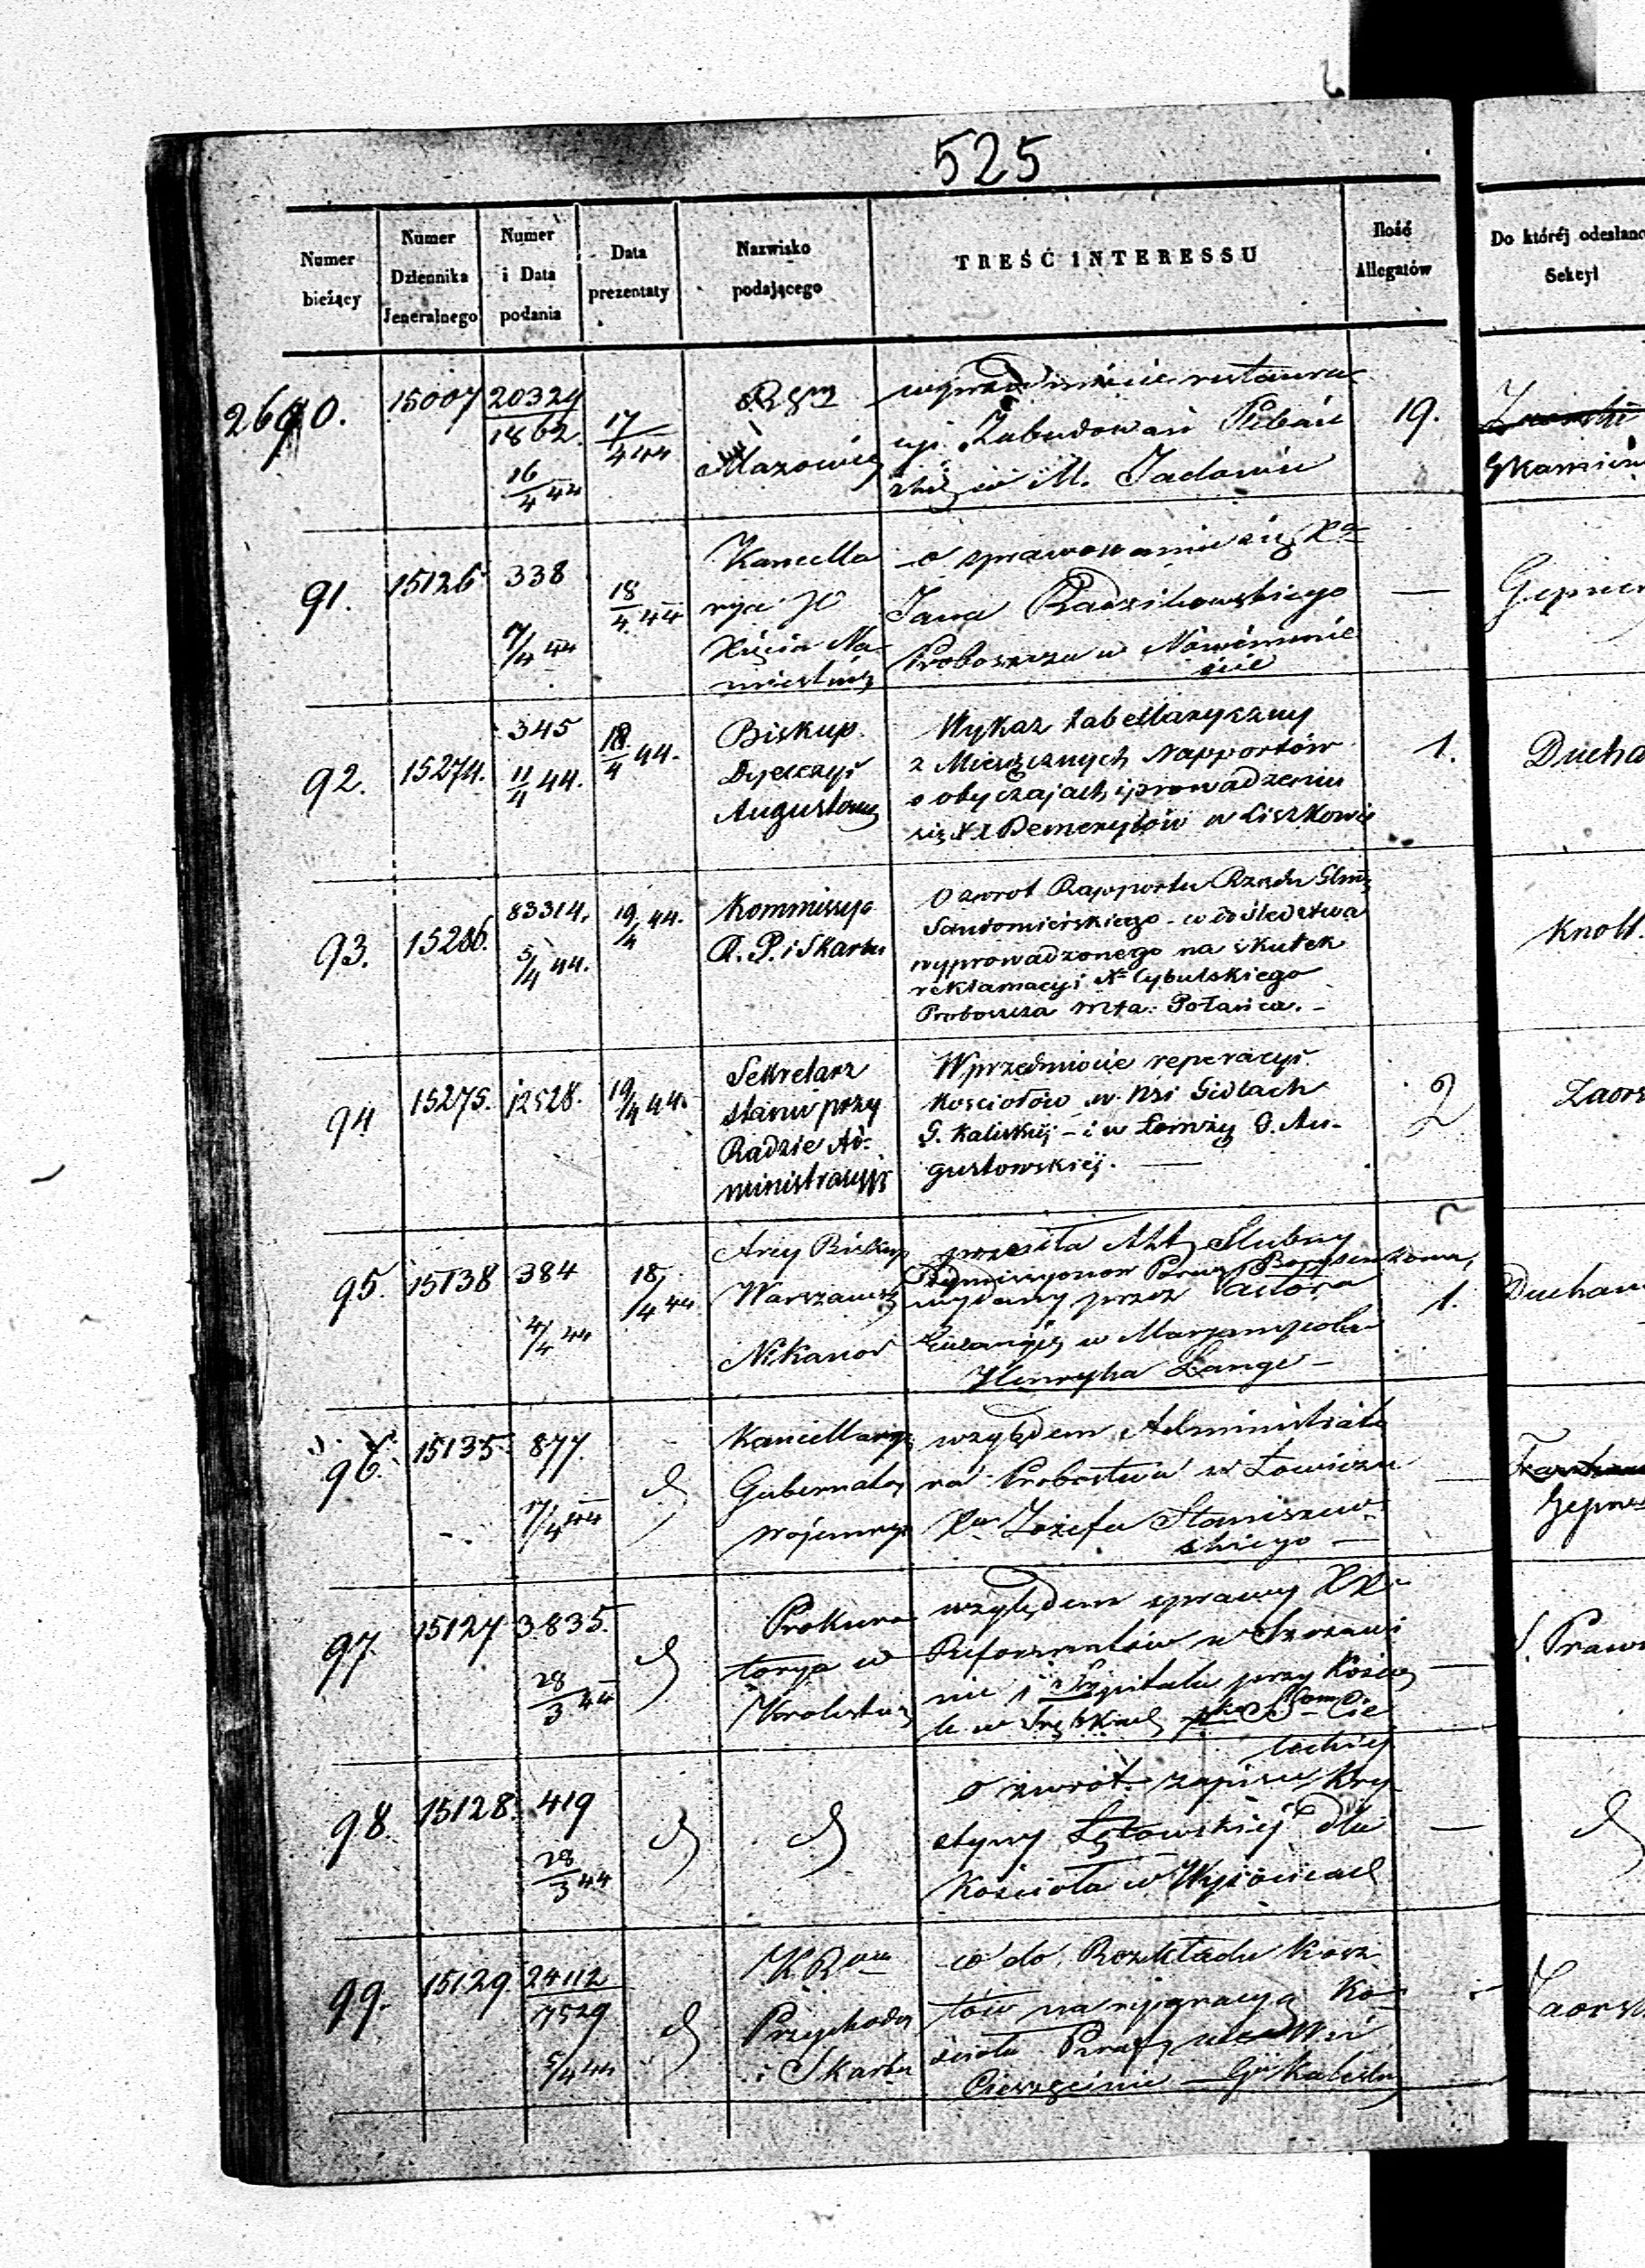 525
Numer bieżący
Numer Dziennika Jeneralnego
Numer i Data podania
Data prezentaty
Nazwisko podającego
TREŚĆ INTERESSU
Ilość Allegatów
Do któréj odesłano Sekcyi
2690. 15007 20329/1862. 16/4 44 17/4 44
Mazowiec
w przedmiocie restaura-
cyi Zabudowań Plebań
skich w M. Jadowie
19.
91. 15126 338 7/4 44 18/4 44
Kancella
rya JO
Xięcia Na-
miestnika
o sprawowanie się Xa
Jana Radzikowskiego
Proboszcza w Nowémmie
ście
—
92. 15274. 345 11/4 44. 18/4 44.
Biskup
Dyecezyi
Augustows
Wykaz tabellaryczny
z Miesięcznych rapportów
o obyczajach i prowadzeniu
się XX Demerytów w Liszkowie
1.
Ducha
93. 15286. 83314. 5/4 44. 19/4 44.
Kommissya
R. P. i Skarbu
O zwrot Rapportu Rządu Gbn
Sandomierskiego - co do śledztwa
wyprowadzonego na skutek
reklamacyi Xa Cybulskiego
Proboszcza mta. Połańca. -
Knoll.
94 15275. 12528. 19/4 44.
Sekretarz
stanu przy
Radzie Ad-
ministracyj
W przedmiocie reperacyi
kosciołów w Wsi Gidlach
G. Kaliskiéj - i w Łomży G. Au-
gustowskiéj. —
2
Zaors
95. 15138 384 4/4 44 18/4 44
Arcy Biskup
Warszawsk
Nikanor
przesyła Akt Slubny
Dymissyonow
wydany przez Pastora
Ewangie w Maryampolu
Henryka Lange -
1.
Duchow
96. 15135 877. 7/4 44
Kancellarya
Gubernator
Wojennego
względem Administrato
ra Probostwa w Łowiczu
Xa Józefa Staniszew-
skiego —
—
97. 15127 3835. 28/3 44
Prokura
torya w
Krolestwie
względem sprawy XX
Reformatów w Szczawi
nie i Szpitalu przy Koście
le w Trębkach
leckiéj
—
S. Prawn
98. 15128. 419 28/3 44
o zwrot zapisu Kry
styny Łętowskiéj dla
Kościoła w Wysocicach
—
99. 15129. 24112/7529 5/4 44
K. R.
Przychodów
i Skarbu
co do Rozkładu Kosz
tów na reperacyą Ko-
ścioła Paraf we Wsi
Cieszęcinie — Gii Kalisk
Zaorsk